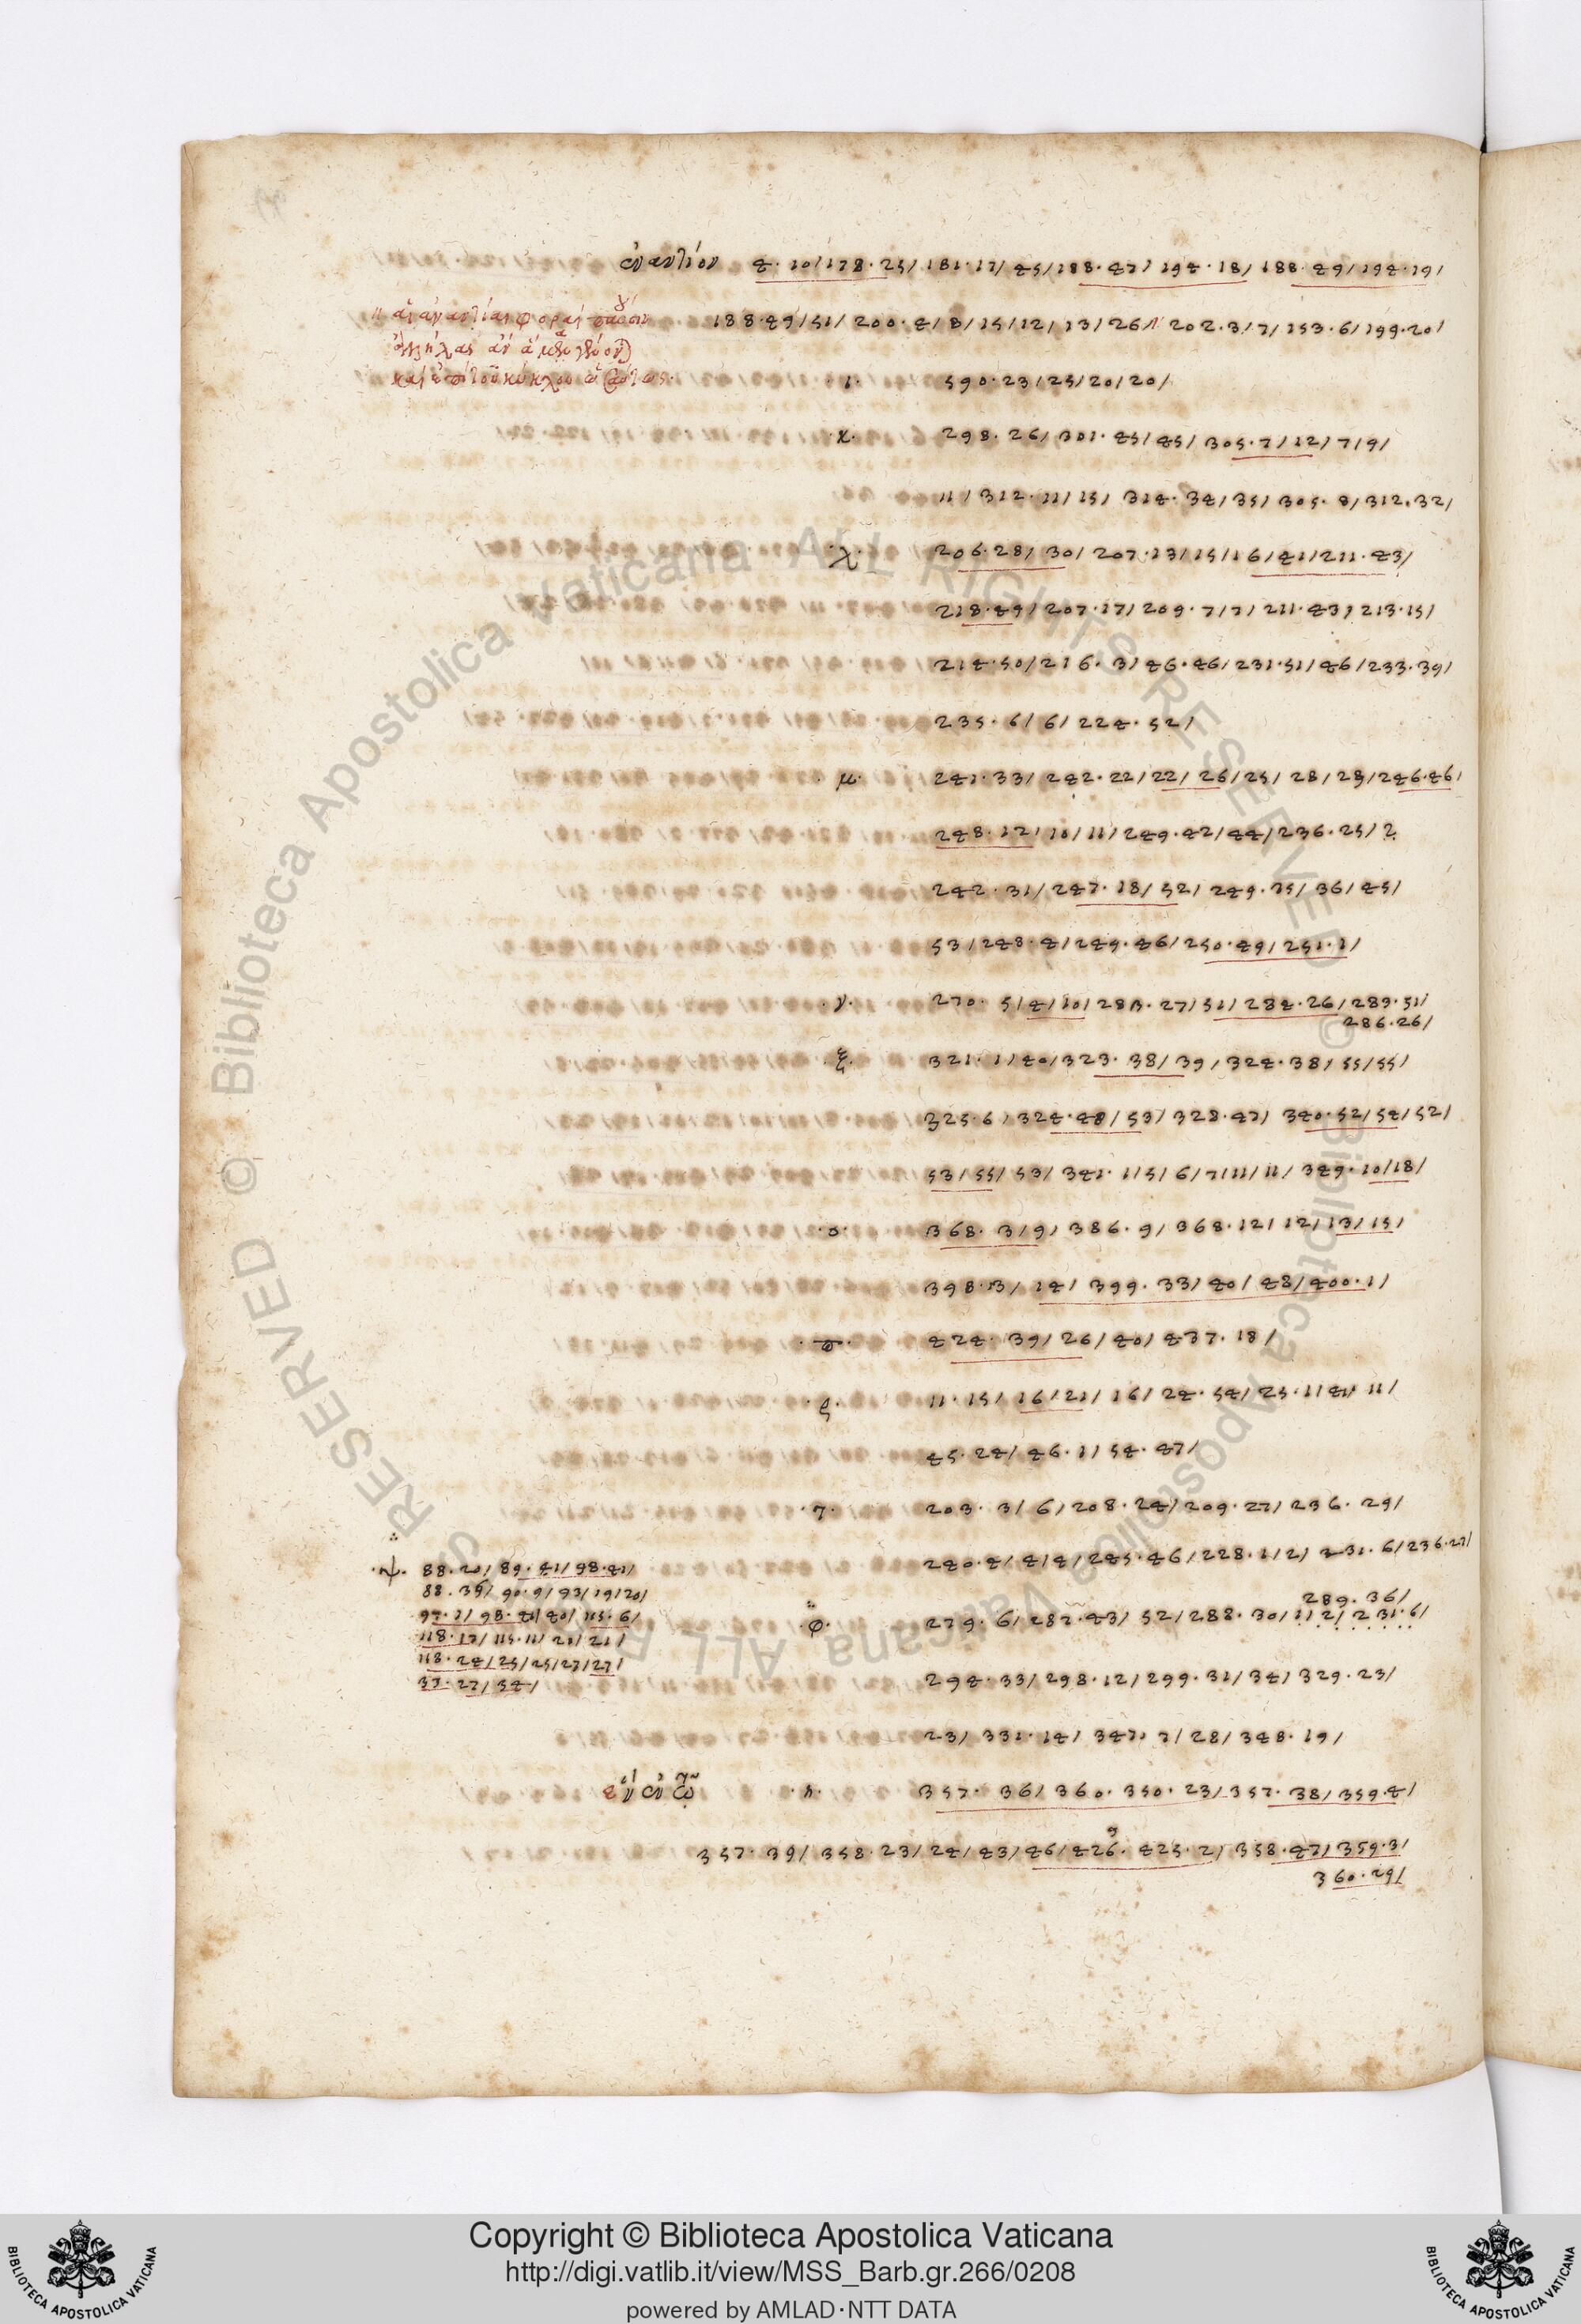 ἐναντίον 4·10/178·25/181·17/45/188·47/194·18/188·49/194·19/
αἱ ἐναντίαι φοραὶ 188·49/51/200·4/8/15/12/13/26/202·3/7/153·6/199·20/
ἀλλήλας
καὶ ἐπὶ τοῦ κύκλου
·ι· 590·23/25/20/20/
·κ· 298·26/301·45/45/305·7/12/7/9/
11/312·11/15/314·34/35/305·8/312·32/
·λ· 206·28/30/207·13/15/16/41/211·43/
218·49/207·17/209·7/7/211·43/213·15/
214·50/216·3/46·46/231·51/46/233·39/
235·6/6/224·52/
·μ· 241·33/242·22/22/26/25/28/28/246·46/
248·12/10/11/249·42/44/236·25/2
242·31/247·18/52/249·35/36/45/
53/248·4/249·46/250·49/251·1/
·ν· 270·5/4/10/283·27/51/284·26/289·51/
286·26/
·ξ· 321·1/40/323·38/39/324·38/55/55/
325·6/324·48/53/328·47/340·52/54/52/
53/55/53/341·1/5/6/7/11/11/349·10/18/
·ο· 368·3/9/386·9/368·12/12/13/15/
398·13/14/399·33/40/48/400·1/
·π· 424·39/26/40/437·18/
·ρ· 11·15/16/21/16/24·54/25·1/41/11/
45·24/46·1/54·47/
·τ· 203·3/6/208·24/209·27/236·29/
240·4/4/4/245·46/228·1/2/231·6/236·27/
·ψ· 88·20/89·41/98·41/
88·35/90·9/93/19/20/
97·1/98·41/40/115·6/
118·17/115·11/21/21/
118·24/25/25/27/27/
37·27/34/
289·36/
·φ· 279·6/282·43/52/288·30/1/2/231·6/
294·33/298·12/299·31/34/329·23/
23/331·14/347·7/28/348·19/
357·36/360·350·23/357·38/359·4/
357·39/358·23/24/43/46/426·425·2/358·47/359·3/
360·29/
Copyright © Biblioteca Apostolica Vaticana
http://digi.vatlib.it/view/MSS_Barb.gr.266/0208
powered by AMLAD·NTT DATA
BIBLIOTECA APOSTOLICA VATICANA
BIBLIOTECA APOSTOLICA VATICANA